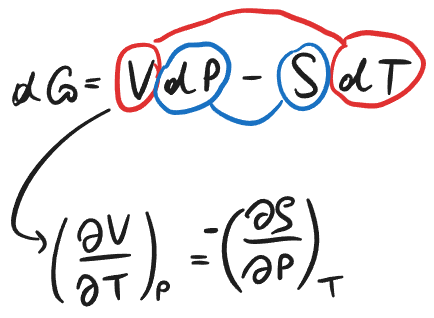 dG = VdP - SdT
(∂V/∂T)_P = -(∂S/∂P)_T